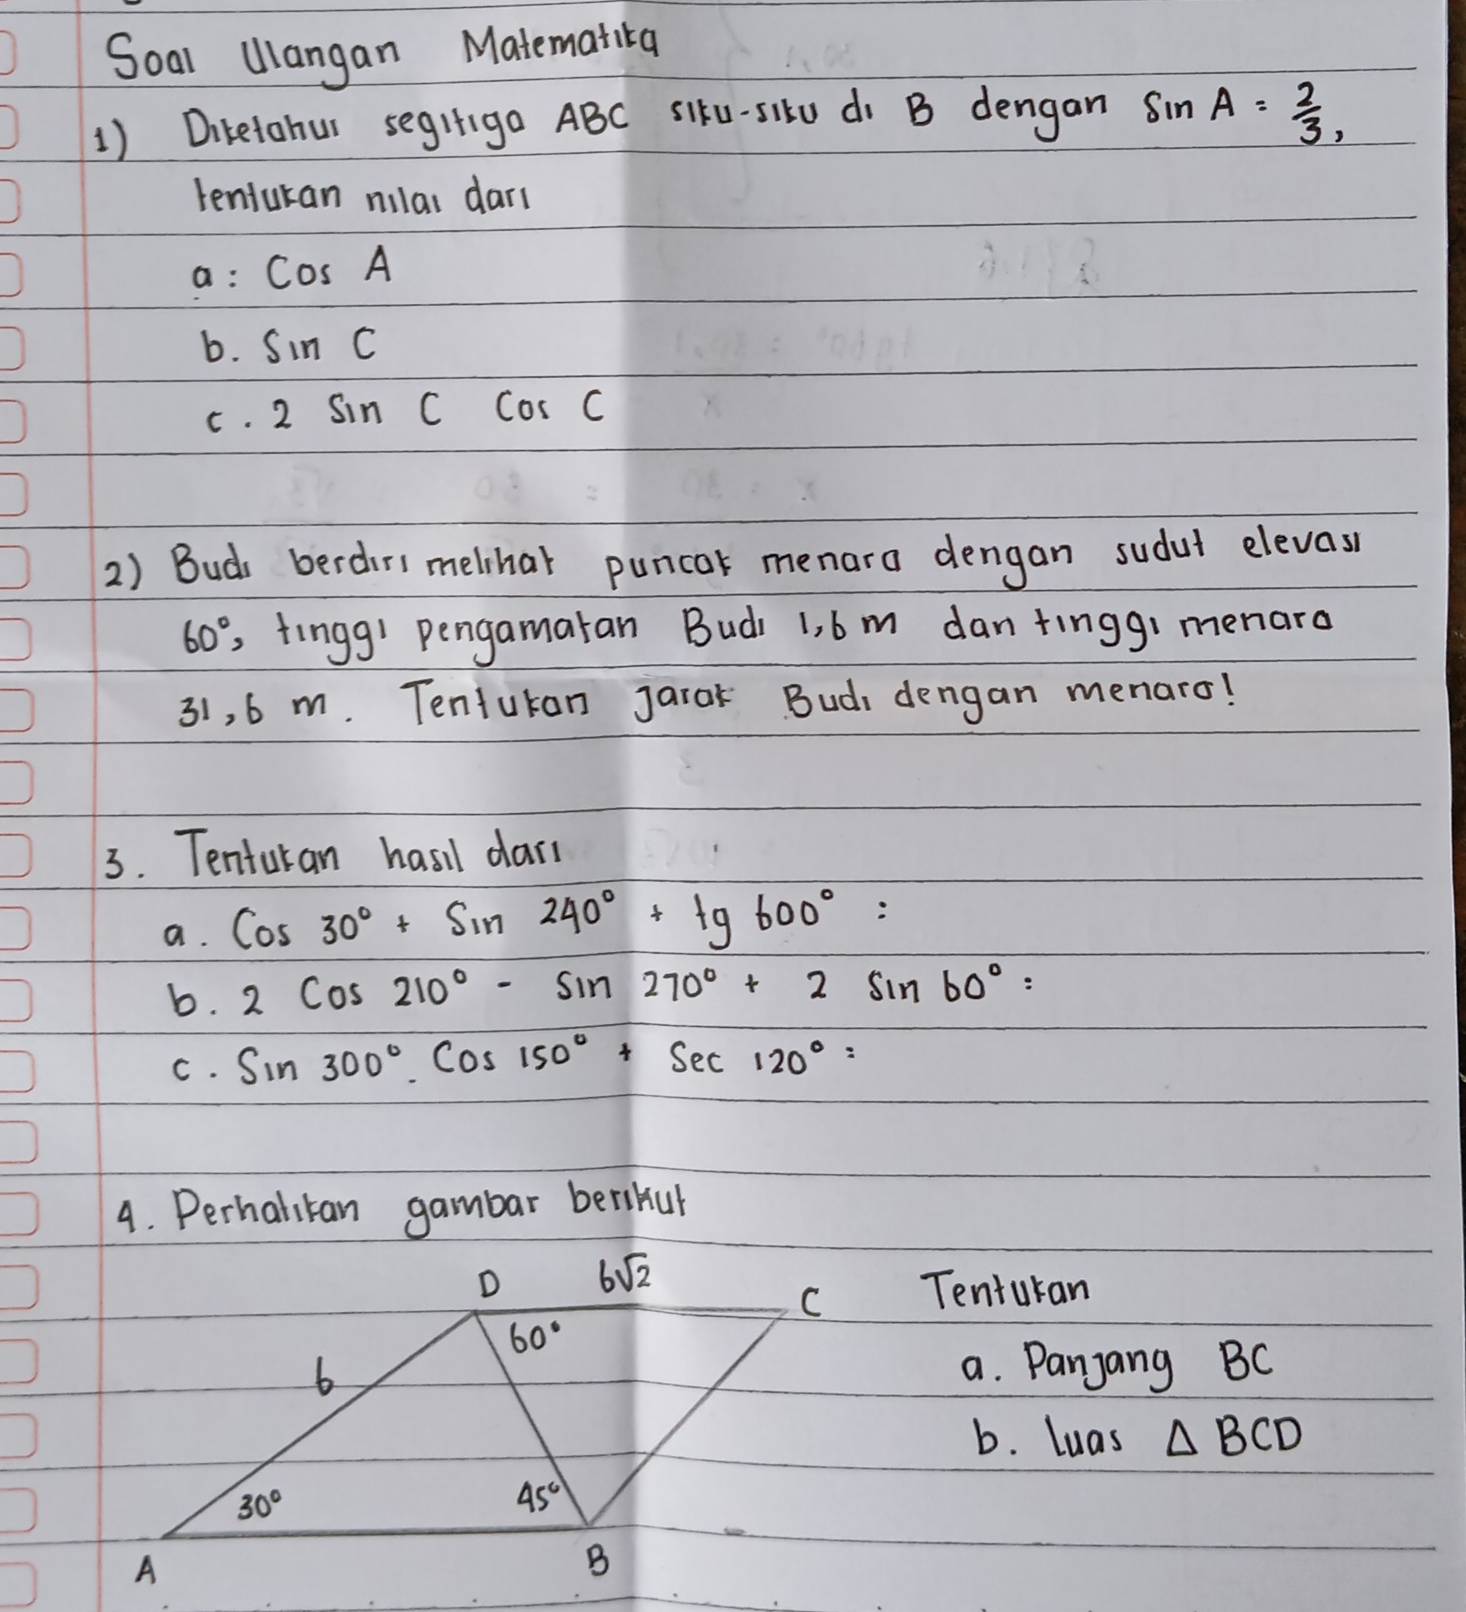 Soal Ulangan Matematika
1) Diketahui segitiga ABC siku-siku di B dengan Sin A = 2/3,
tentukan nilai dari
a. Cos A
b. Sin C
c. 2 Sin C Cos C
2) Budi berdiri melihat puncak menara dengan sudut elevasi
60°, tinggi pengamatan Budi 1,6 m dan tinggi menara
31,6 m. Tentukan jarak Budi dengan menara!
3. Tentukan hasil dari
a. Cos 30° + Sin 240° + tg 600° =
b. 2 Cos 210° - Sin 270° + 2 Sin 60° =
c. Sin 300° . Cos 150° + Sec 120° =
4. Perhatikan gambar berikut
D 6√2 C
60°
6
30° 45°
A B
Tentukan
a. Panjang BC
b. luas Δ BCD